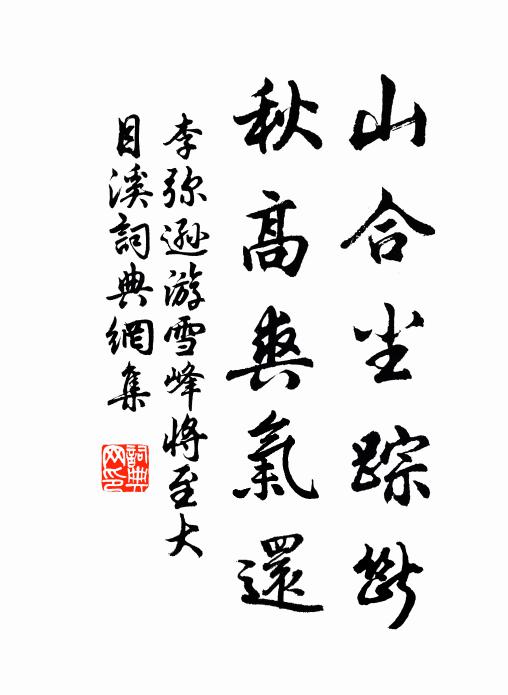 山合尘踪断
秋高爽氣還
李弥遜游雪峰将至大
目溪詞典網集
詞典
网印